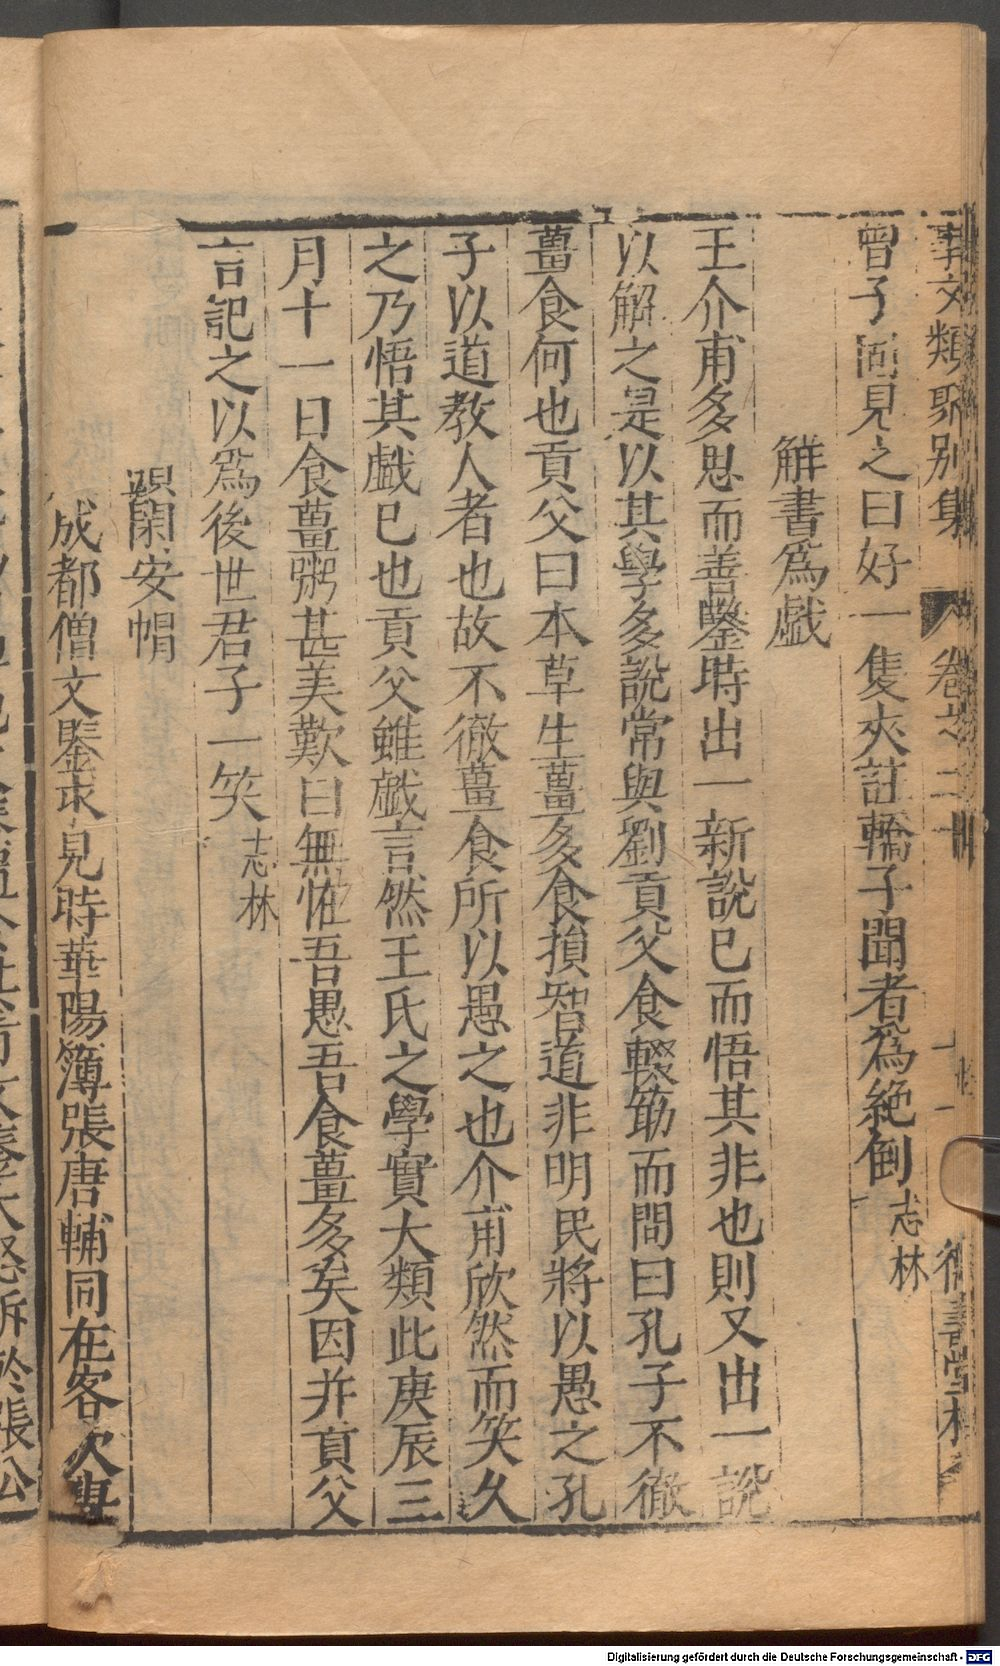 事文類聚別集 卷之二十
德壽堂梓
曾子固見之曰好一隻夾註轎子聞者爲絶倒 志林
觧書爲戱
王介甫多思而善鑿時出一新說已而悟其非也則又出一說
以解之是以其學多說常與劉貢父食輟筯而問曰孔子不徹
薑食何也貢父曰本草生薑多食損智道非明民將以愚之孔
子以道教人者也故不徹薑食所以愚之也介甫欣然而笑久
之乃悟其戱已也貢父雖戱言然王氏之學實大類此庚辰三
月十一日食薑粥甚美歎曰無怪吾愚吾食薑多矣因并貢父
言記之以爲後世君子一笑 志林
閑安帽
成都僧文鑒求見時華陽簿張唐輔同在客次
Digitalisierung gefördert durch die Deutsche Forschungsgemeinschaft - DFG